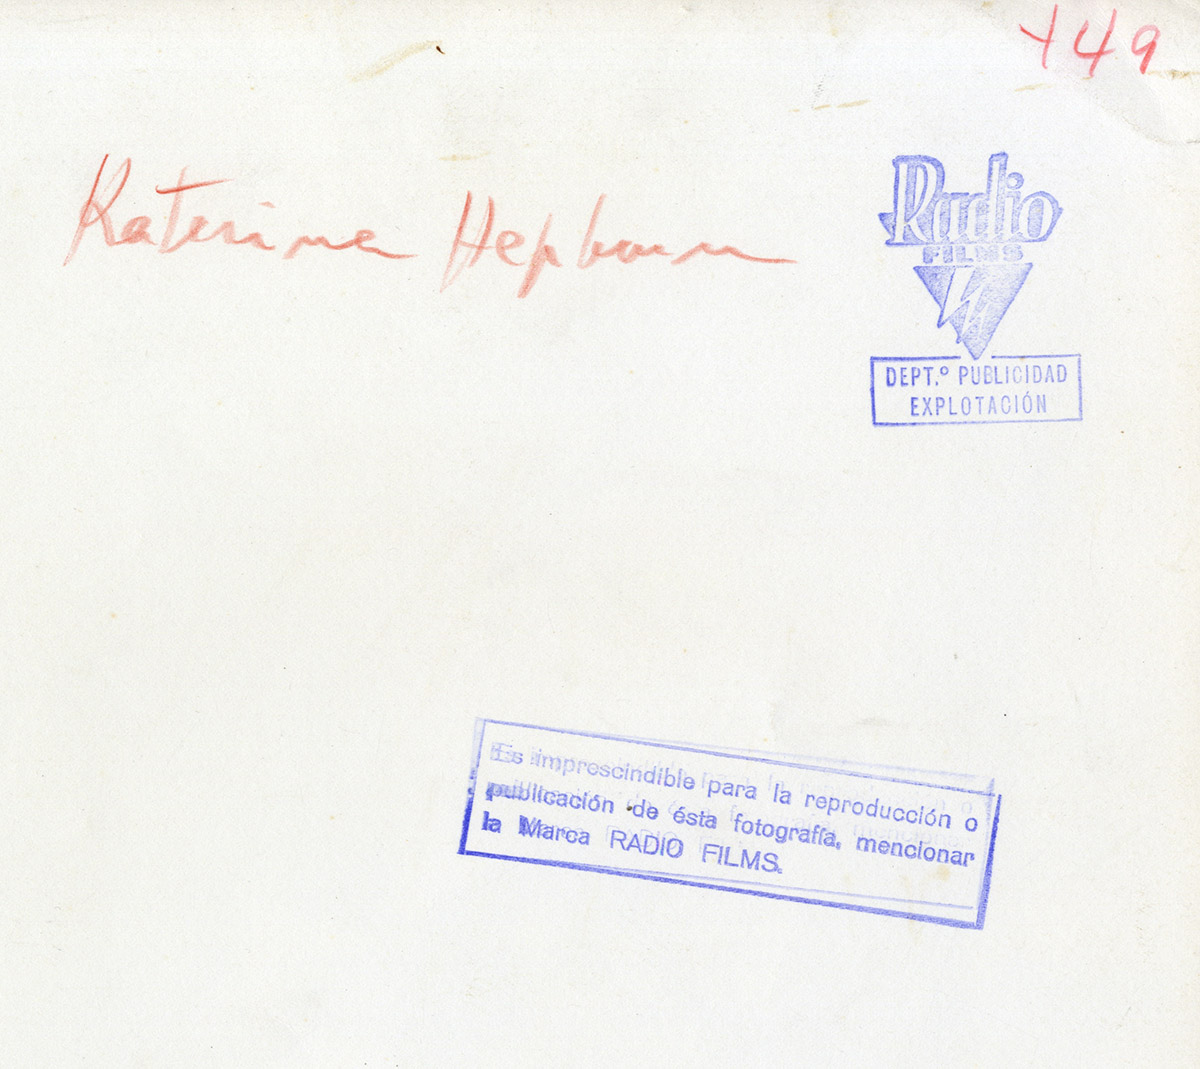 149
Katerina Hepburn
Radio
FILMS
DEPT.º PUBLICIDAD
EXPLOTACIÓN
Es imprescindible para la reproducción o
publicación de ésta fotografía, mencionar
la Marca RADIO FILMS.